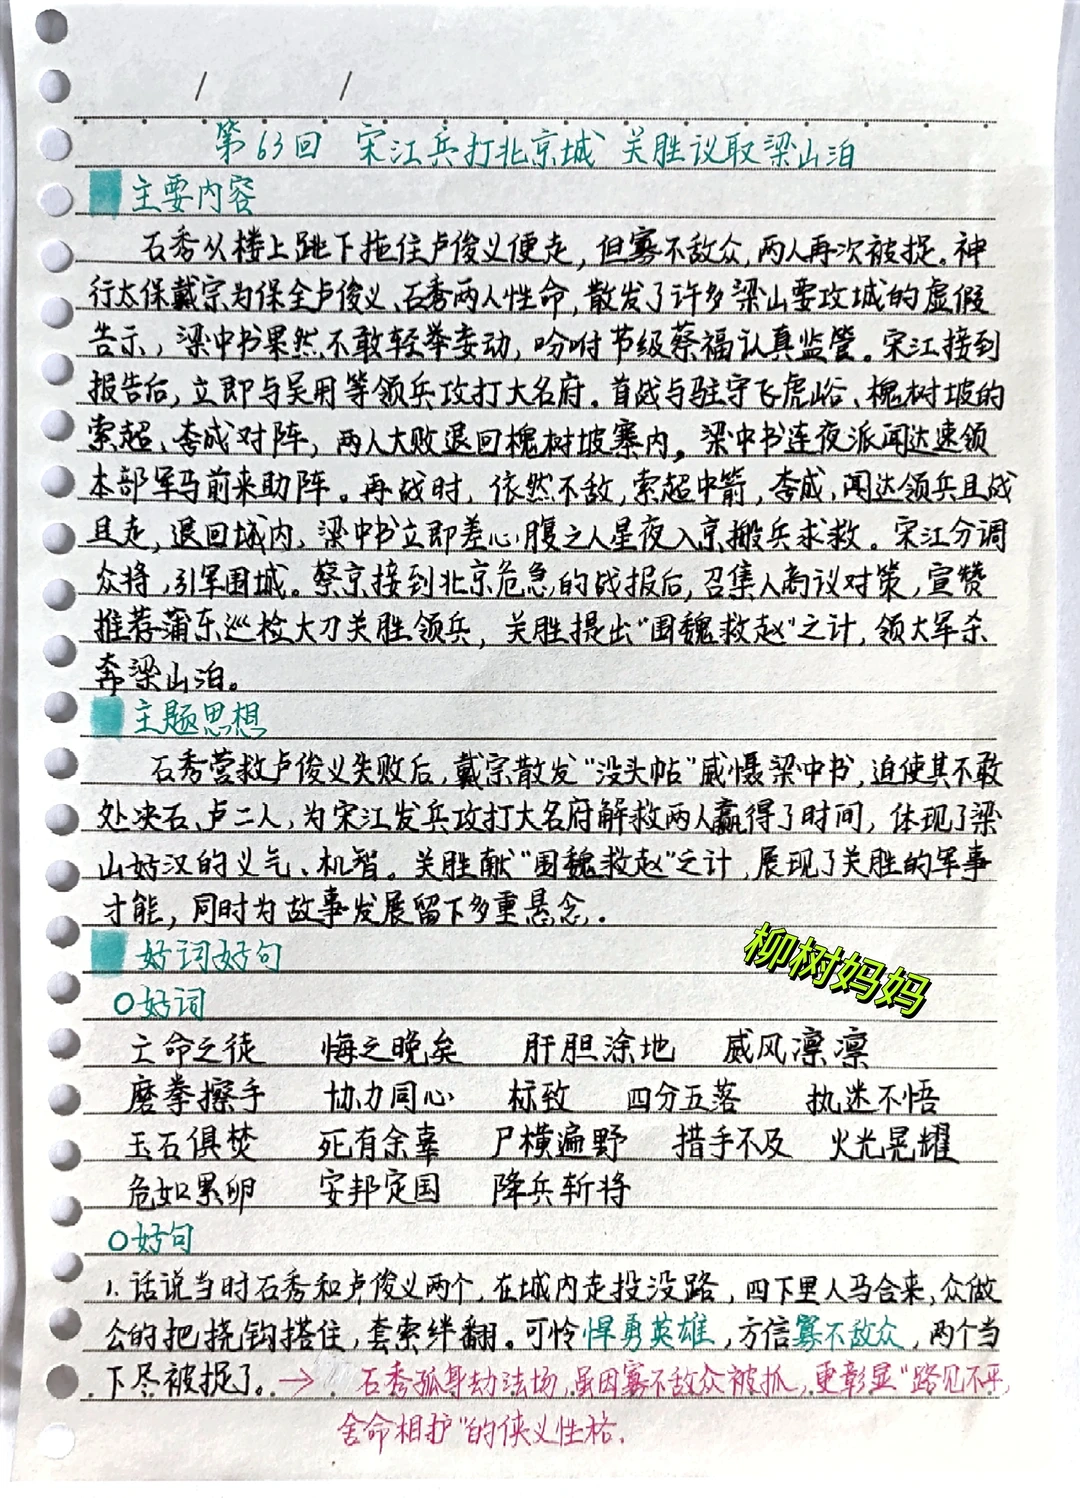 第63回 宋江兵打北京城 关胜议取梁山泊
主要内容
石秀从楼上跳下拖住卢俊义便走，但寡不敌众，两人再次被捉。神
行太保戴宗为保全卢俊义、石秀两人性命，散发了许多梁山要攻城的虚假
告示，梁中书果然不敢轻举妄动，吩咐节级蔡福认真监管。宋江接到
报告后，立即与吴用等领兵攻打大名府。首战与驻守飞虎峪、槐树坡的
索超、李成对阵，两人大败退回槐树坡寨内。梁中书连夜派闻达速领
本部军马前来助阵。再战时，依然不敌，索超中箭，李成、闻达领兵且战
且走，退回城内，梁中书立即差心腹之人星夜入京搬兵求救。宋江分调
众将，引军围城。蔡京接到北京危急的战报后，召集人商议对策，宣赞
推荐蒲东巡检大刀关胜领兵，关胜提出“围魏救赵”之计，领大军杀
奔梁山泊。
主题思想
石秀营救卢俊义失败后，戴宗散发“没头帖”威慑梁中书，迫使其不敢
处决石、卢二人，为宋江发兵攻打大名府解救两人赢得了时间，体现了梁
山好汉的义气、机智。关胜献“围魏救赵”之计，展现了关胜的军事
才能，同时为故事发展留下多重悬念。
好词好句
柳树妈妈
○好词
亡命之徒 悔之晚矣 肝胆涂地 威风凛凛
磨拳擦手 协力同心 标致 四分五落 执迷不悟
玉石俱焚 死有余辜 尸横遍野 措手不及 火光晃耀
危如累卵 安邦定国 降兵斩将
○好句
1. 话说当时石秀和卢俊义两个，在城内走投没路，四下里人马合来，众做
公的把挠钩搭住，套索绊翻。可怜悍勇英雄，方信寡不敌众，两个当
下尽被捉了。→ 石秀孤身劫法场，虽因寡不敌众被抓，更彰显“路见不平，
舍命相护”的侠义性格。